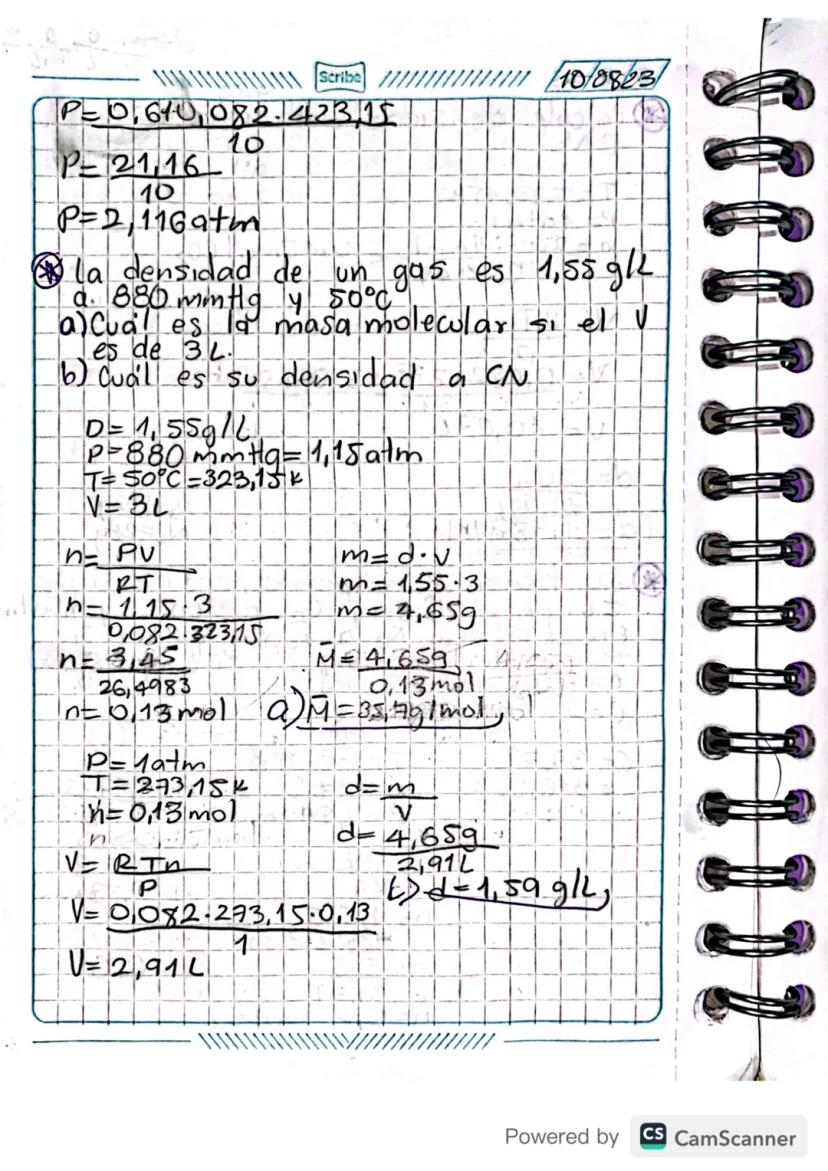 Scribe
10/08/23
P= 0,610,082.423,15
10
P= 21,16
10
P=2,116atm
La densidad de un gas es 1,55 g/L
a. 880 mmHg y 50°C
a) Cuál es la masa molecular si el V
es de 3L.
b) Cuál es su densidad a CN
D= 1,55g/L
P=880 mmHg=1,15atm
T=50°C=323,15k
V=3L
n= PV
RT
n= 1,15.3
0,082.323,15
n= 3,45
26,4983
n= 0,13 mol
m= d.v
m= 1,55.3
m= 4,65g
M= 4,65g
0,13mol
a) M=35,7g/mol
P=1atm
T=273,15k
n=0,13mol
n
V= RTn
P
V= 0,082.273,15.0,13
1
V=2,91L
d= m
V
d= 4,65g
2,91L
d=1,59 g/L
Powered by CS CamScanner